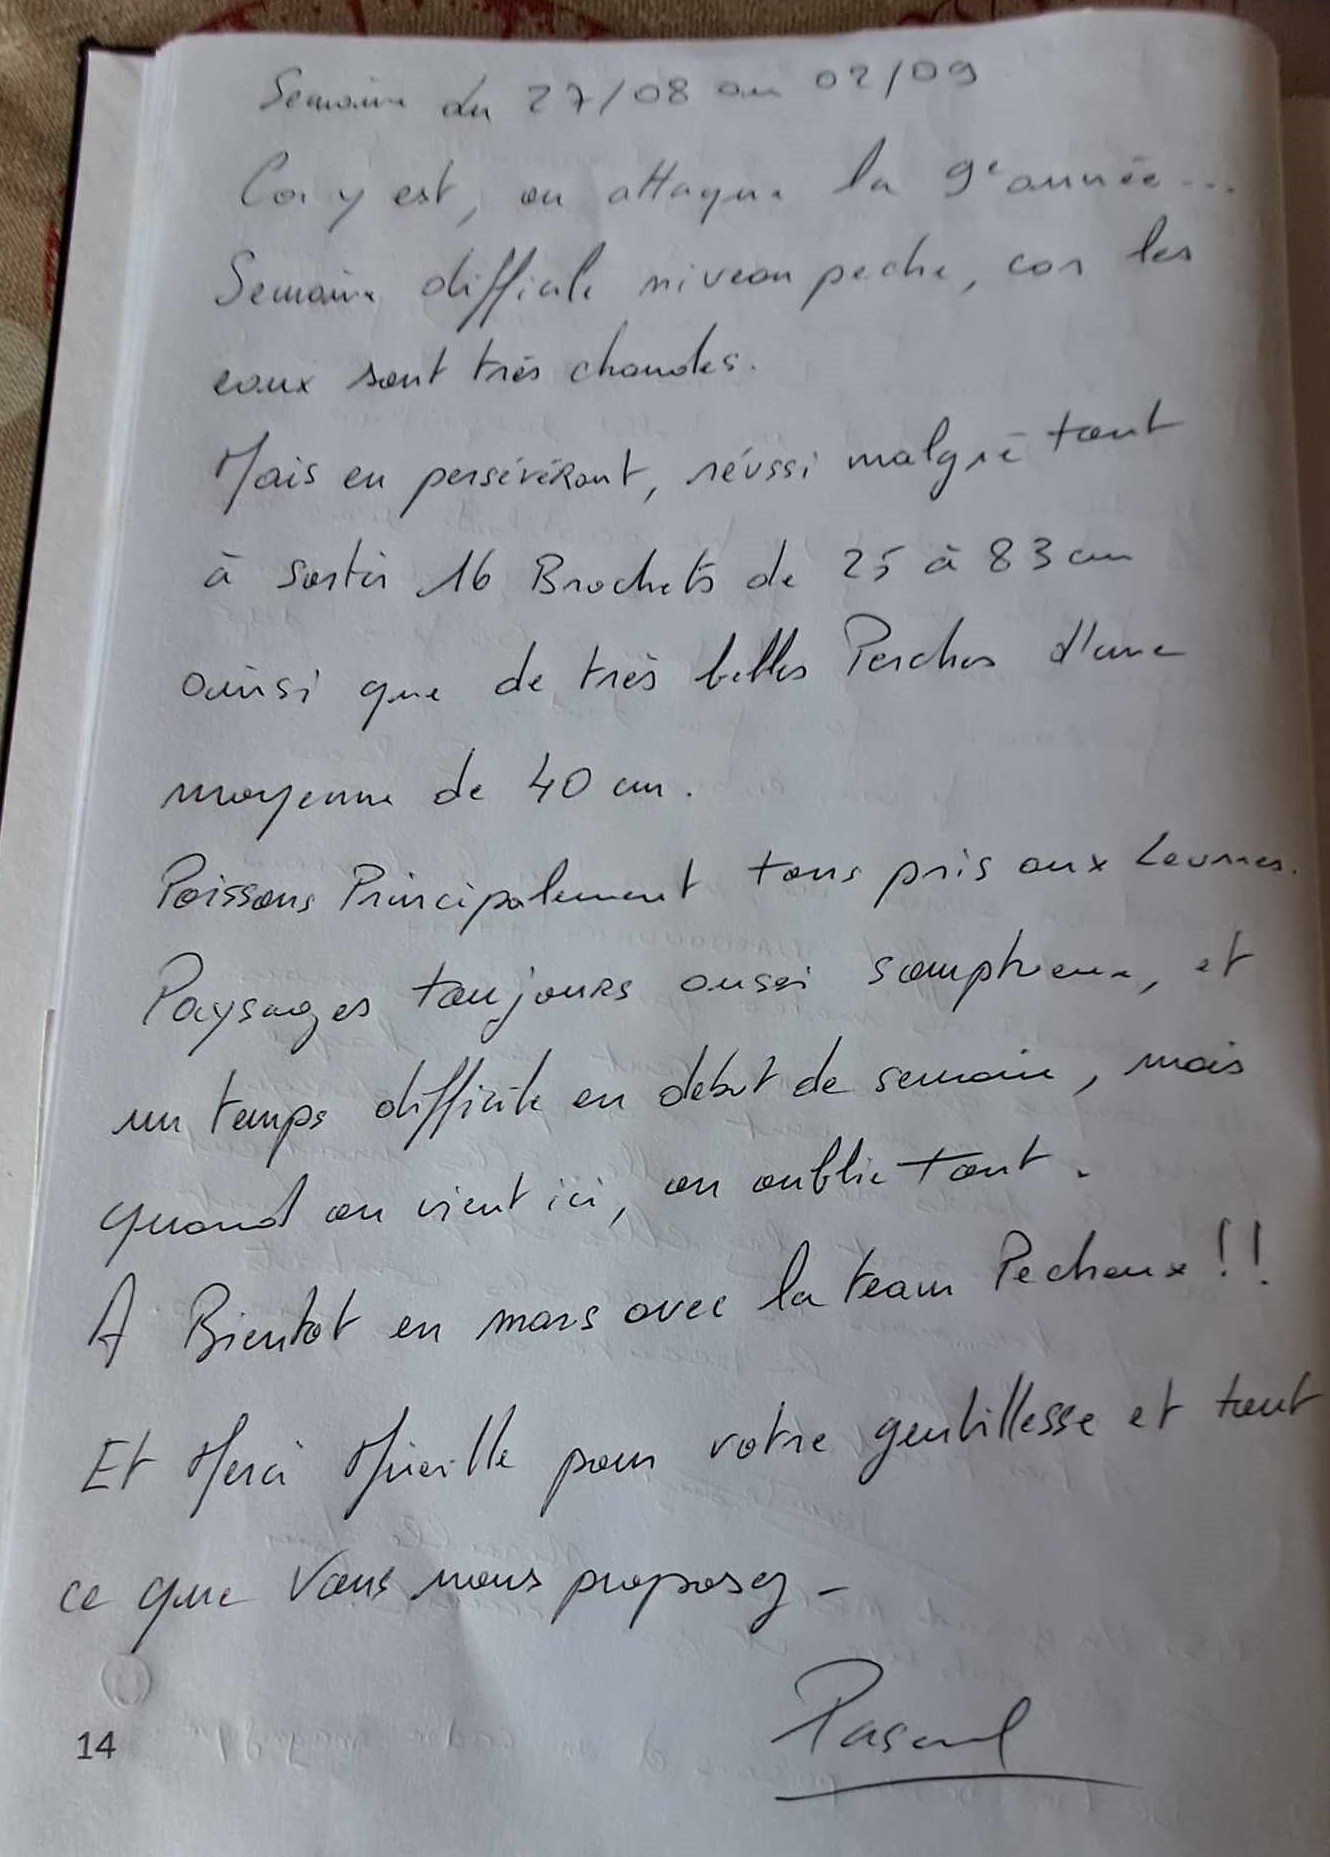 Semaine du 27/08 au 02/09
Ca y est, on attaque la 9e année...
Semaine difficile niveau peche, car les
eaux sont très chaudes.
Mais en persévérant, réussi malgré tout
à sortir 16 Brochets de 25 à 83 cm
ainsi que de très belles Perches d'une
moyenne de 40 cm.
Poissons Principalement tous pris aux Leurres.
Paysages toujours aussi somptueux, et
un temps difficile en debut de semaine, mais
quand on vient ici, on oublie tout.
A Bientot en mars avec la team Pecheux !!
Et Merci Mireille pour votre gentillesse et tout
ce que Vous nous proposez -
Pascal
14